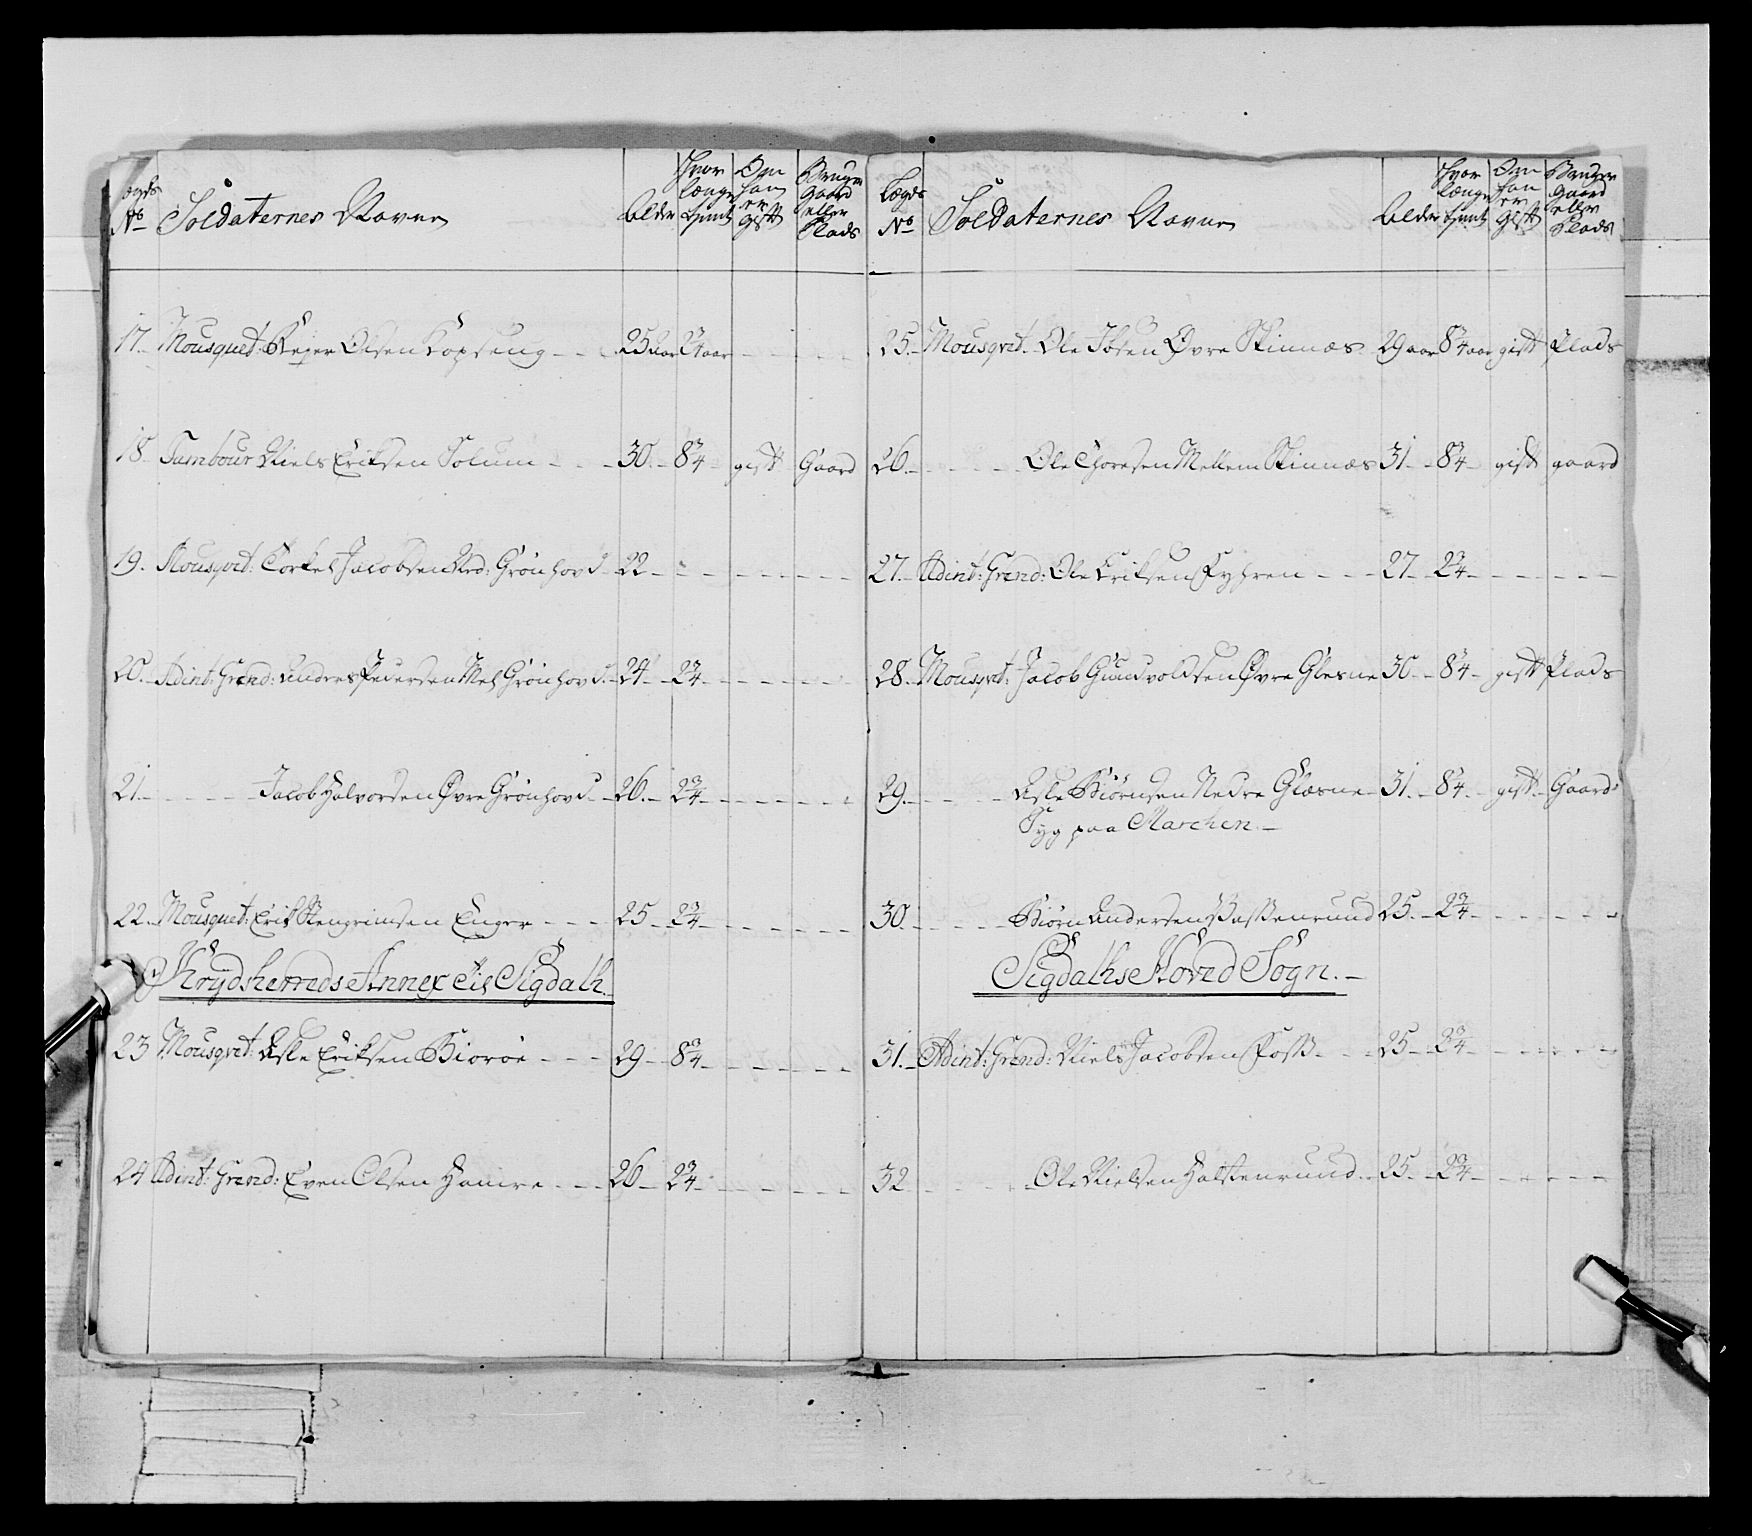 Lægds No Soldaternes Navne Alder Hvor længe tjent Om han er gift Bruger Gaard eller Plads
17. Mousquet: Rejer Olsen Kopseng 25 aar 2¾ aar
18. Tambour Niels Eriksen Solum 30. 8¾ gift Gaard
19. Mousqvet: Torkel Jacobsen Nrd: Grønhovd 22
20. Adint: Grend: Anders Pedersen Mel Grønhovd. 24 2¾
21. Jacob Halvorsen Øvre Grønhovd 26. 2¾
22. Mousquet: Erik Stengrimsen Enger 25 2¾
Krydsherreds Annex til Sigdalh.
23 Mousqvet: Asle Eriksen Biorøe 29 8¾
24 Adint: Grend: Even Olsen Hamre 26 2¾
Lægds No Soldaternes Navne Alder Hvor længe tjent Om han er gift Bruger Gaard eller Plads
25. Mousqvet. Ole Ibsen Øvre Skinnæs 29 aar 8¾ aar gift Plads
26. Ole Thoresen Mellem Skinnæs 31 8¾ gift gaard
27. Adint: Grend: Ole Eriksen Fyhren 27 2¾
28. Mousqvet: Jacob Gundvoldsen Øvre Glesne 30 8¾ gift Plads
29. Asle Biørnsen Nedre Glæsne 31. 8¾ gift Gaard
Syg paa Marchen.
30. Biørn Andersen Bassenrund 25. 2¾
Sigdalhs Hoved Sogn.
31. Adint: Grend: Niels Jacobsen Foss 25 2¾
32 Ole Nielsen Halstenrund 25 2¾